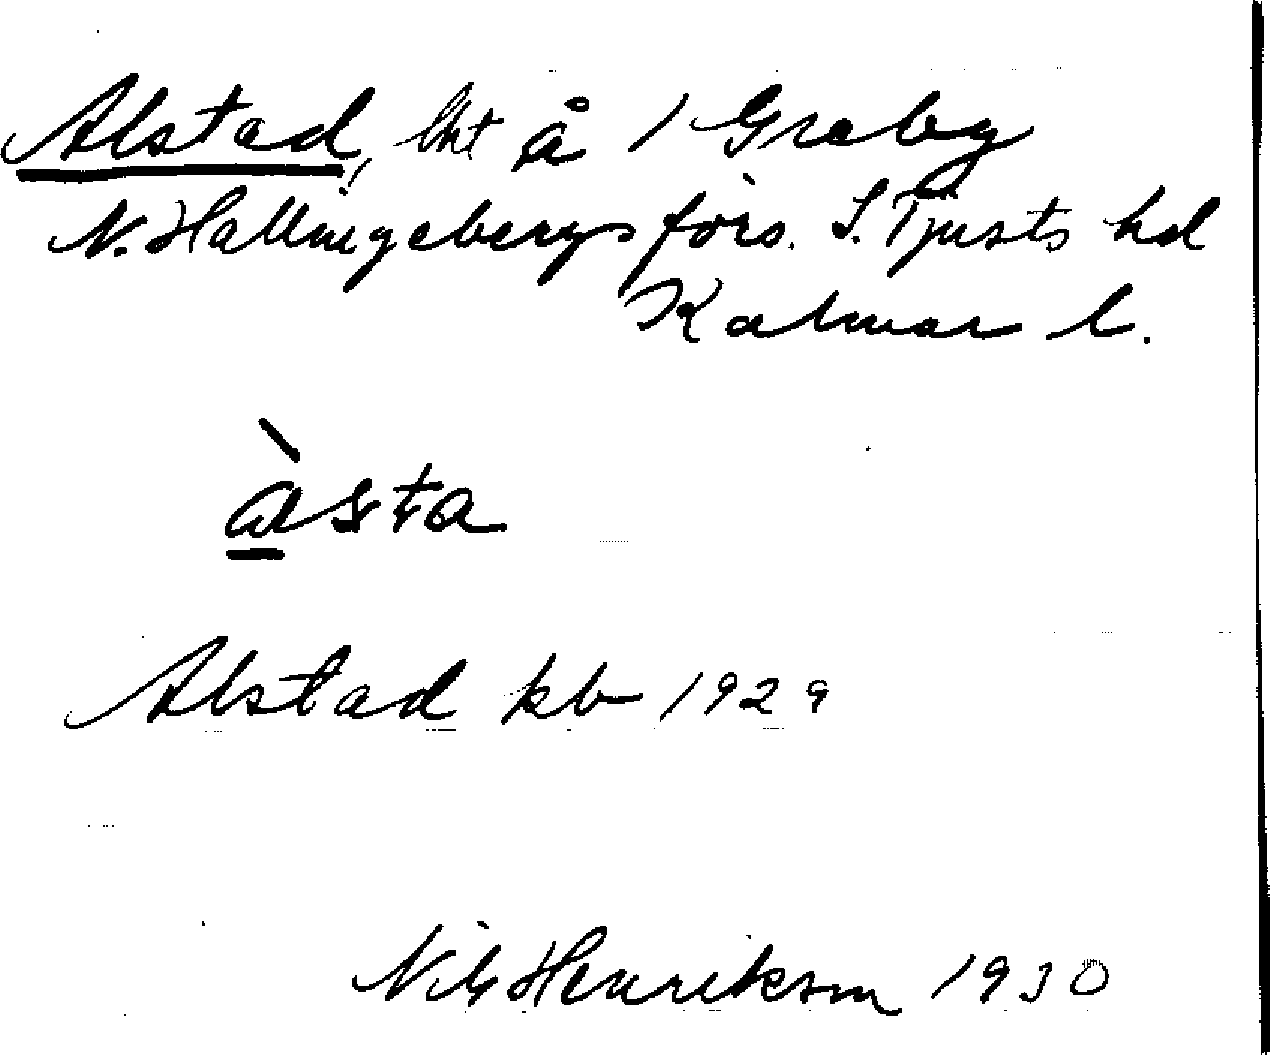 Alstad, lht å 1 Graby
N. Hallingebergs förs. S. Tjusts hd
Kalmar l.
àsta
Alstad kb 1929
Nils Henrikson 1930